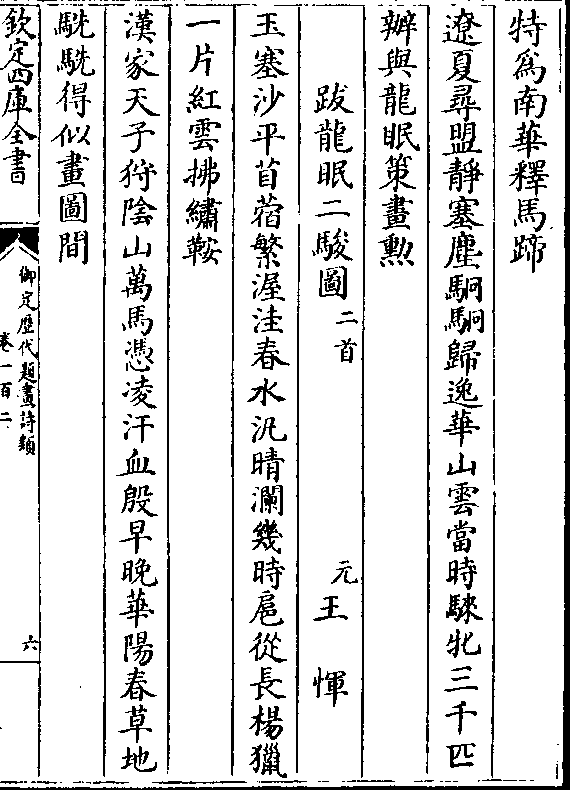 特爲南華釋馬蹄
遼夏尋盟靜塞塵駉駉歸逸華山雲當時騋牝三千匹
辦與龍眠策畫勲
跋龍眠二駿圖二首 元王惲
玉塞沙平苜蓿繁渥洼春水汎晴瀾幾時扈從長楊獵
一片紅雲拂繡鞍
漢家天子狩陰山萬馬憑凌汗血殷早晚華陽春草地
駪駪得似畫圖間
欽定四庫全書
御定歷代題畫詩類
卷一百二
六